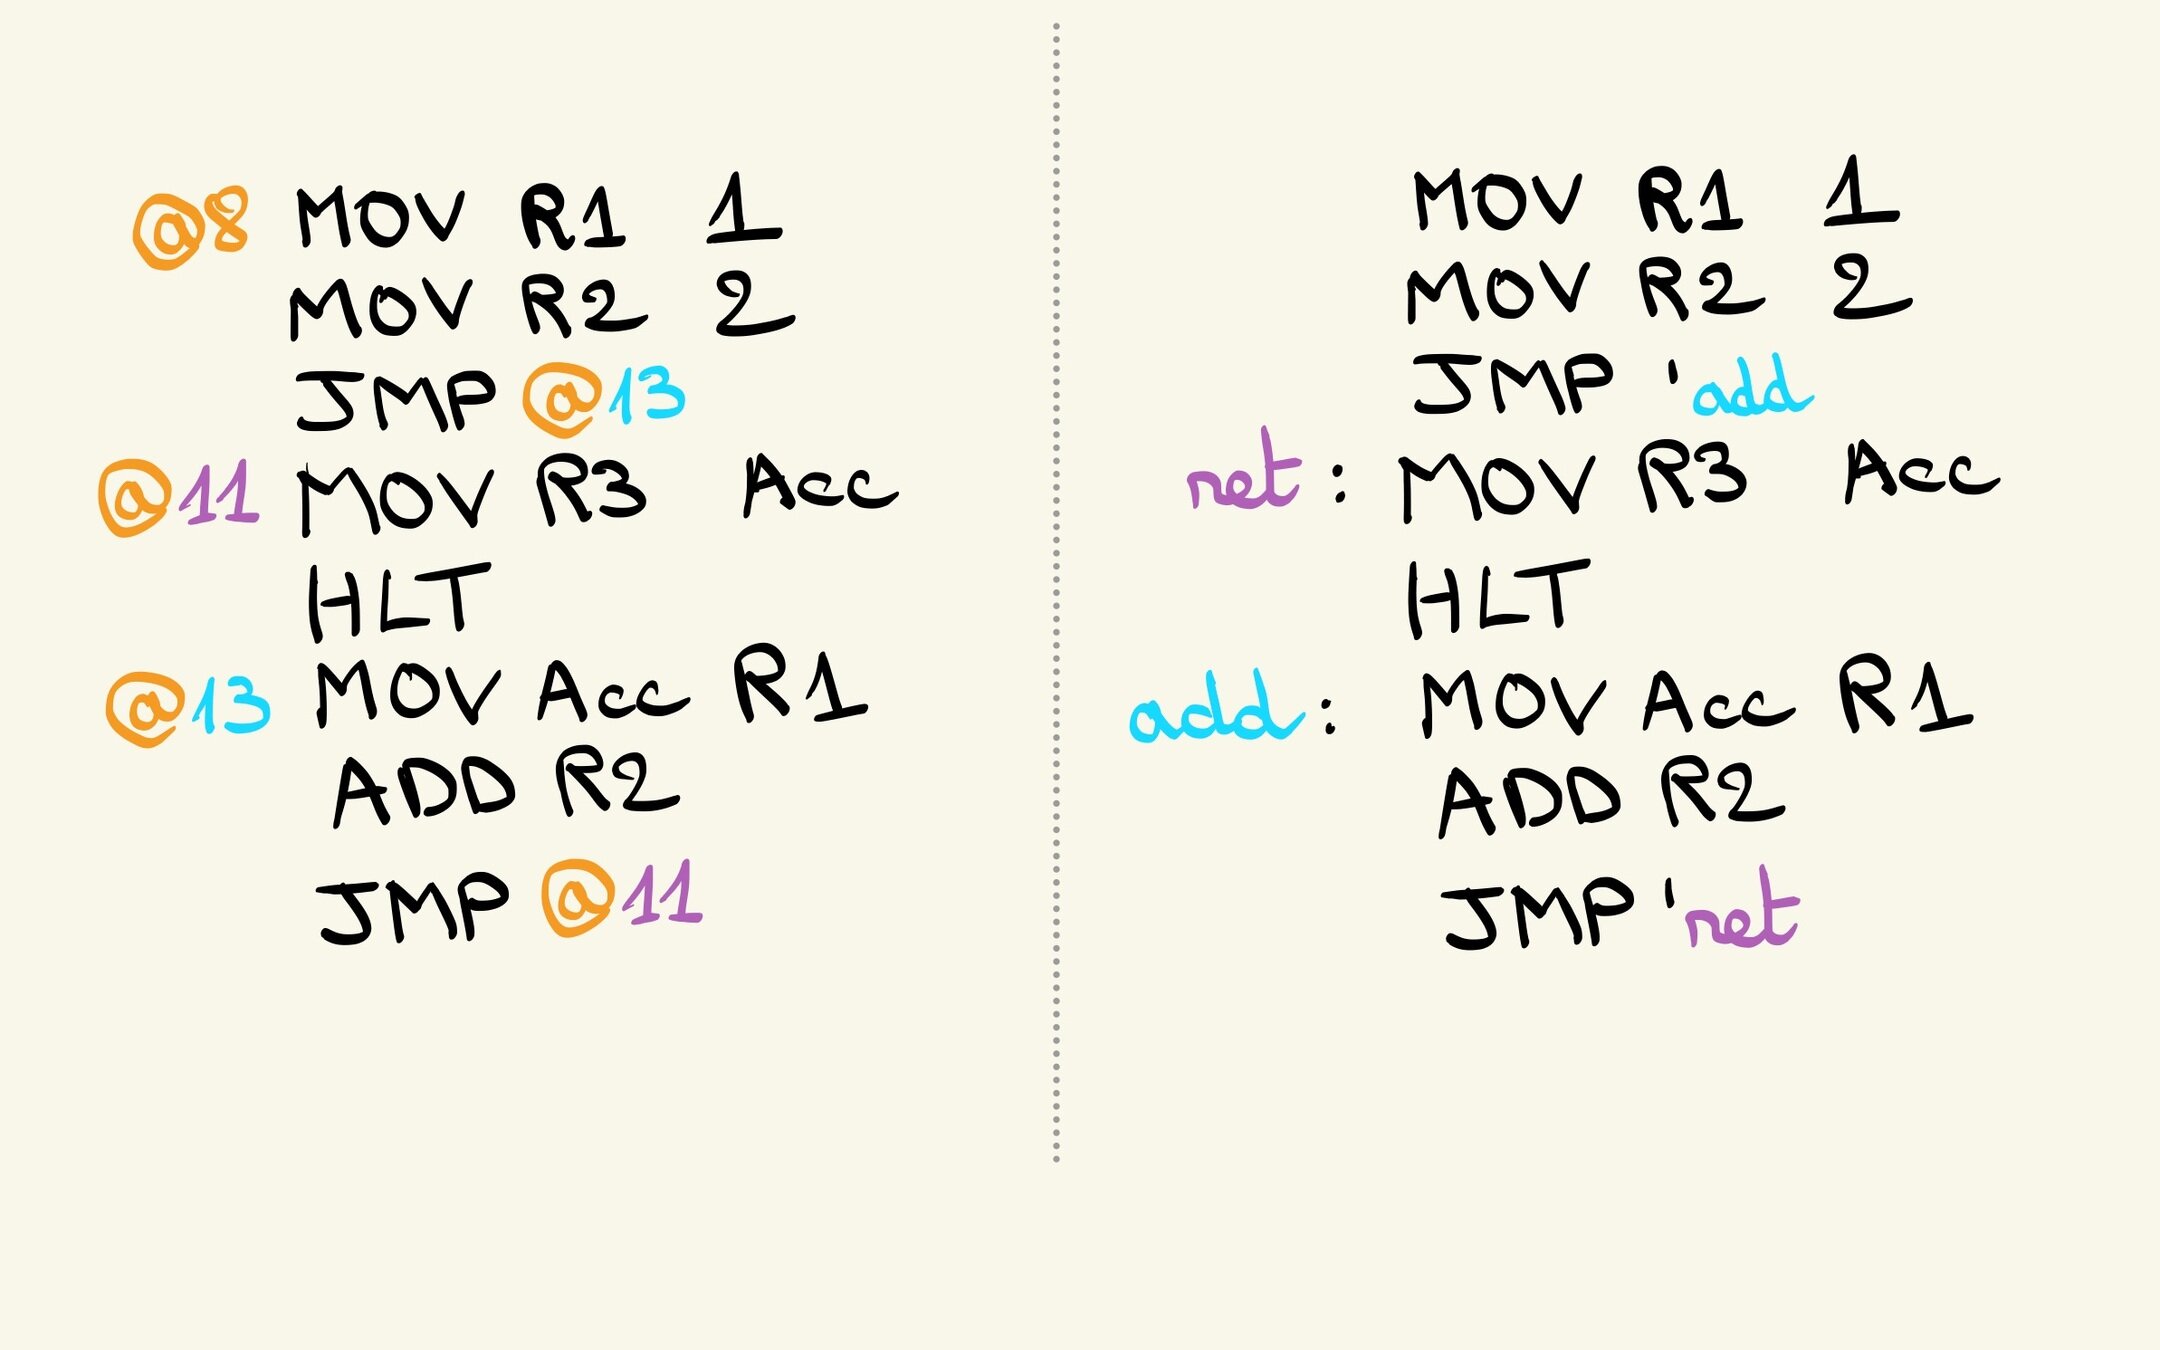 @8 MOV R1 1
MOV R2 2
JMP @13
@11 MOV R3 Acc
HLT
@13 MOV Acc R1
ADD R2
JMP @11
MOV R1 1
MOV R2 2
JMP 'add
ret: MOV R3 Acc
HLT
add: MOV Acc R1
ADD R2
JMP 'ret